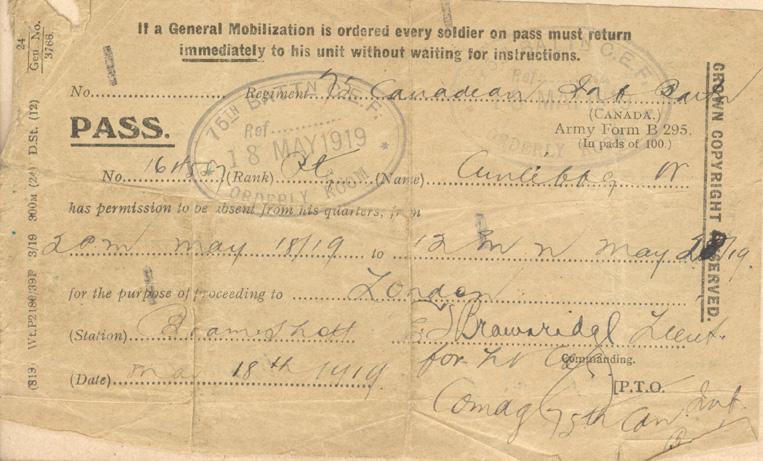 If a General Mobilization is ordered every soldier on pass must return
immediately to his unit without waiting for instructions.
24
Gen. No.
3768
No. Regiment 75 Canadian Inf Battn
(CANADA.)
PASS.
Army Form B 295.
(In pads of 100.)
75TH BATTN C.E.F.
Ref
18 MAY 1919
ORDERLY ROOM
No. (Rank) Pte (Name) W
has permission to be absent from his quarters, from
2 pm may 18/19 to 12 M N May /19.
for the purpose of proceeding to London
(Station) Bramshott
Lieut.
for Lt Col
Commanding.
(Date) May 18th 1919
[P.T.O.
Comdg 75th Can Inf.
CROWN COPYRIGHT RESERVED.
(819) Wt.P2180/39P 3/19 D.St. (12)